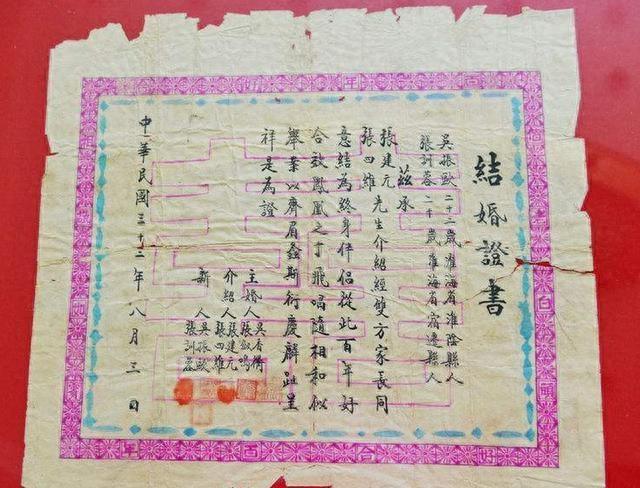 結婚證書
吳振歐二十二歲淮海省淮陰縣人
張訓蓉二十歲淮海省宿遷縣人
茲承
張建元
張四維先生介紹經雙方家長同
意結為終身伴侶從此百年好
合效鳳凰之于飛唱隨相和似
舉案以齊眉螽斯衍慶麟趾呈
祥是為證
主婚人吳
張
介紹人張建元
張四維
新人吳振歐
張訓蓉
中華民國三十三年八月三日
百年
好合百年